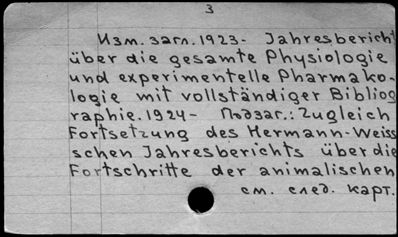 3
Изм. загл. 1923- Jahresbericht
über die gesamte Physiologie
und experimentelle Pharmako-
logie mit vollständiger Bibliog
raphie. 1924- Подзаг.: Zugleich
Fortsetzung des Hermann-Weiss
schen Jahresberichts über die
Fortschritte der animalischen
см. след. карт.